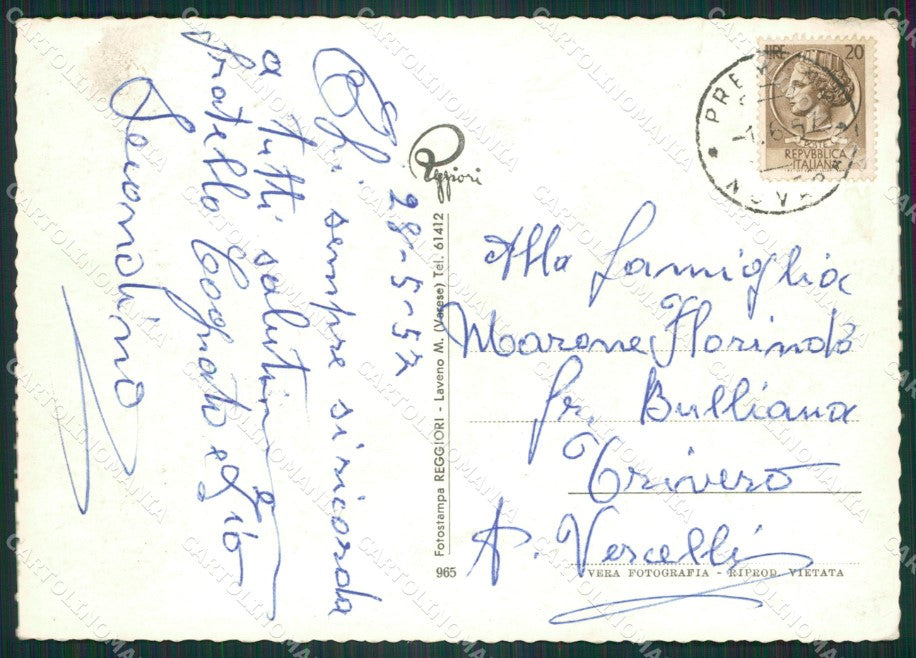 28-5-57
Chi sempre si ricorda
a tutti salutini
fratello Cognato e Zio
Secondino
Reggiori
Fotostampa REGGIORI - Laveno M. (Varese) Tel. 61412
965
LIRE 20
POSTE
REPVBBLICA
ITALIANA
PRE
NOVARA
Alla famiglia
Marone Florindo
fr. Bulliana
Trivero
P. Vercelli
VERA FOTOGRAFIA - RIPROD. VIETATA
CARTOLINOMANIA